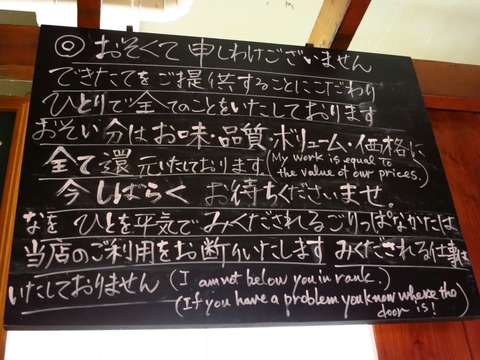 ◎ おそくて 申しわけございません
できたてをご提供することにこだわり
ひとりで全てのことをいたしております
おそい分はお味・品質・ボリューム・価格に
全て還元いたしております (My work is equal to the value of our prices.)
今しばらく お待ちくださいませ。
なを ひとを平気で みくだされるごりっぱなかたは
当店のご利用をお断りいたします みくだされる仕事は
いたしておりません (I am not below you in rank.)
(If you have a problem you know where the door is!)